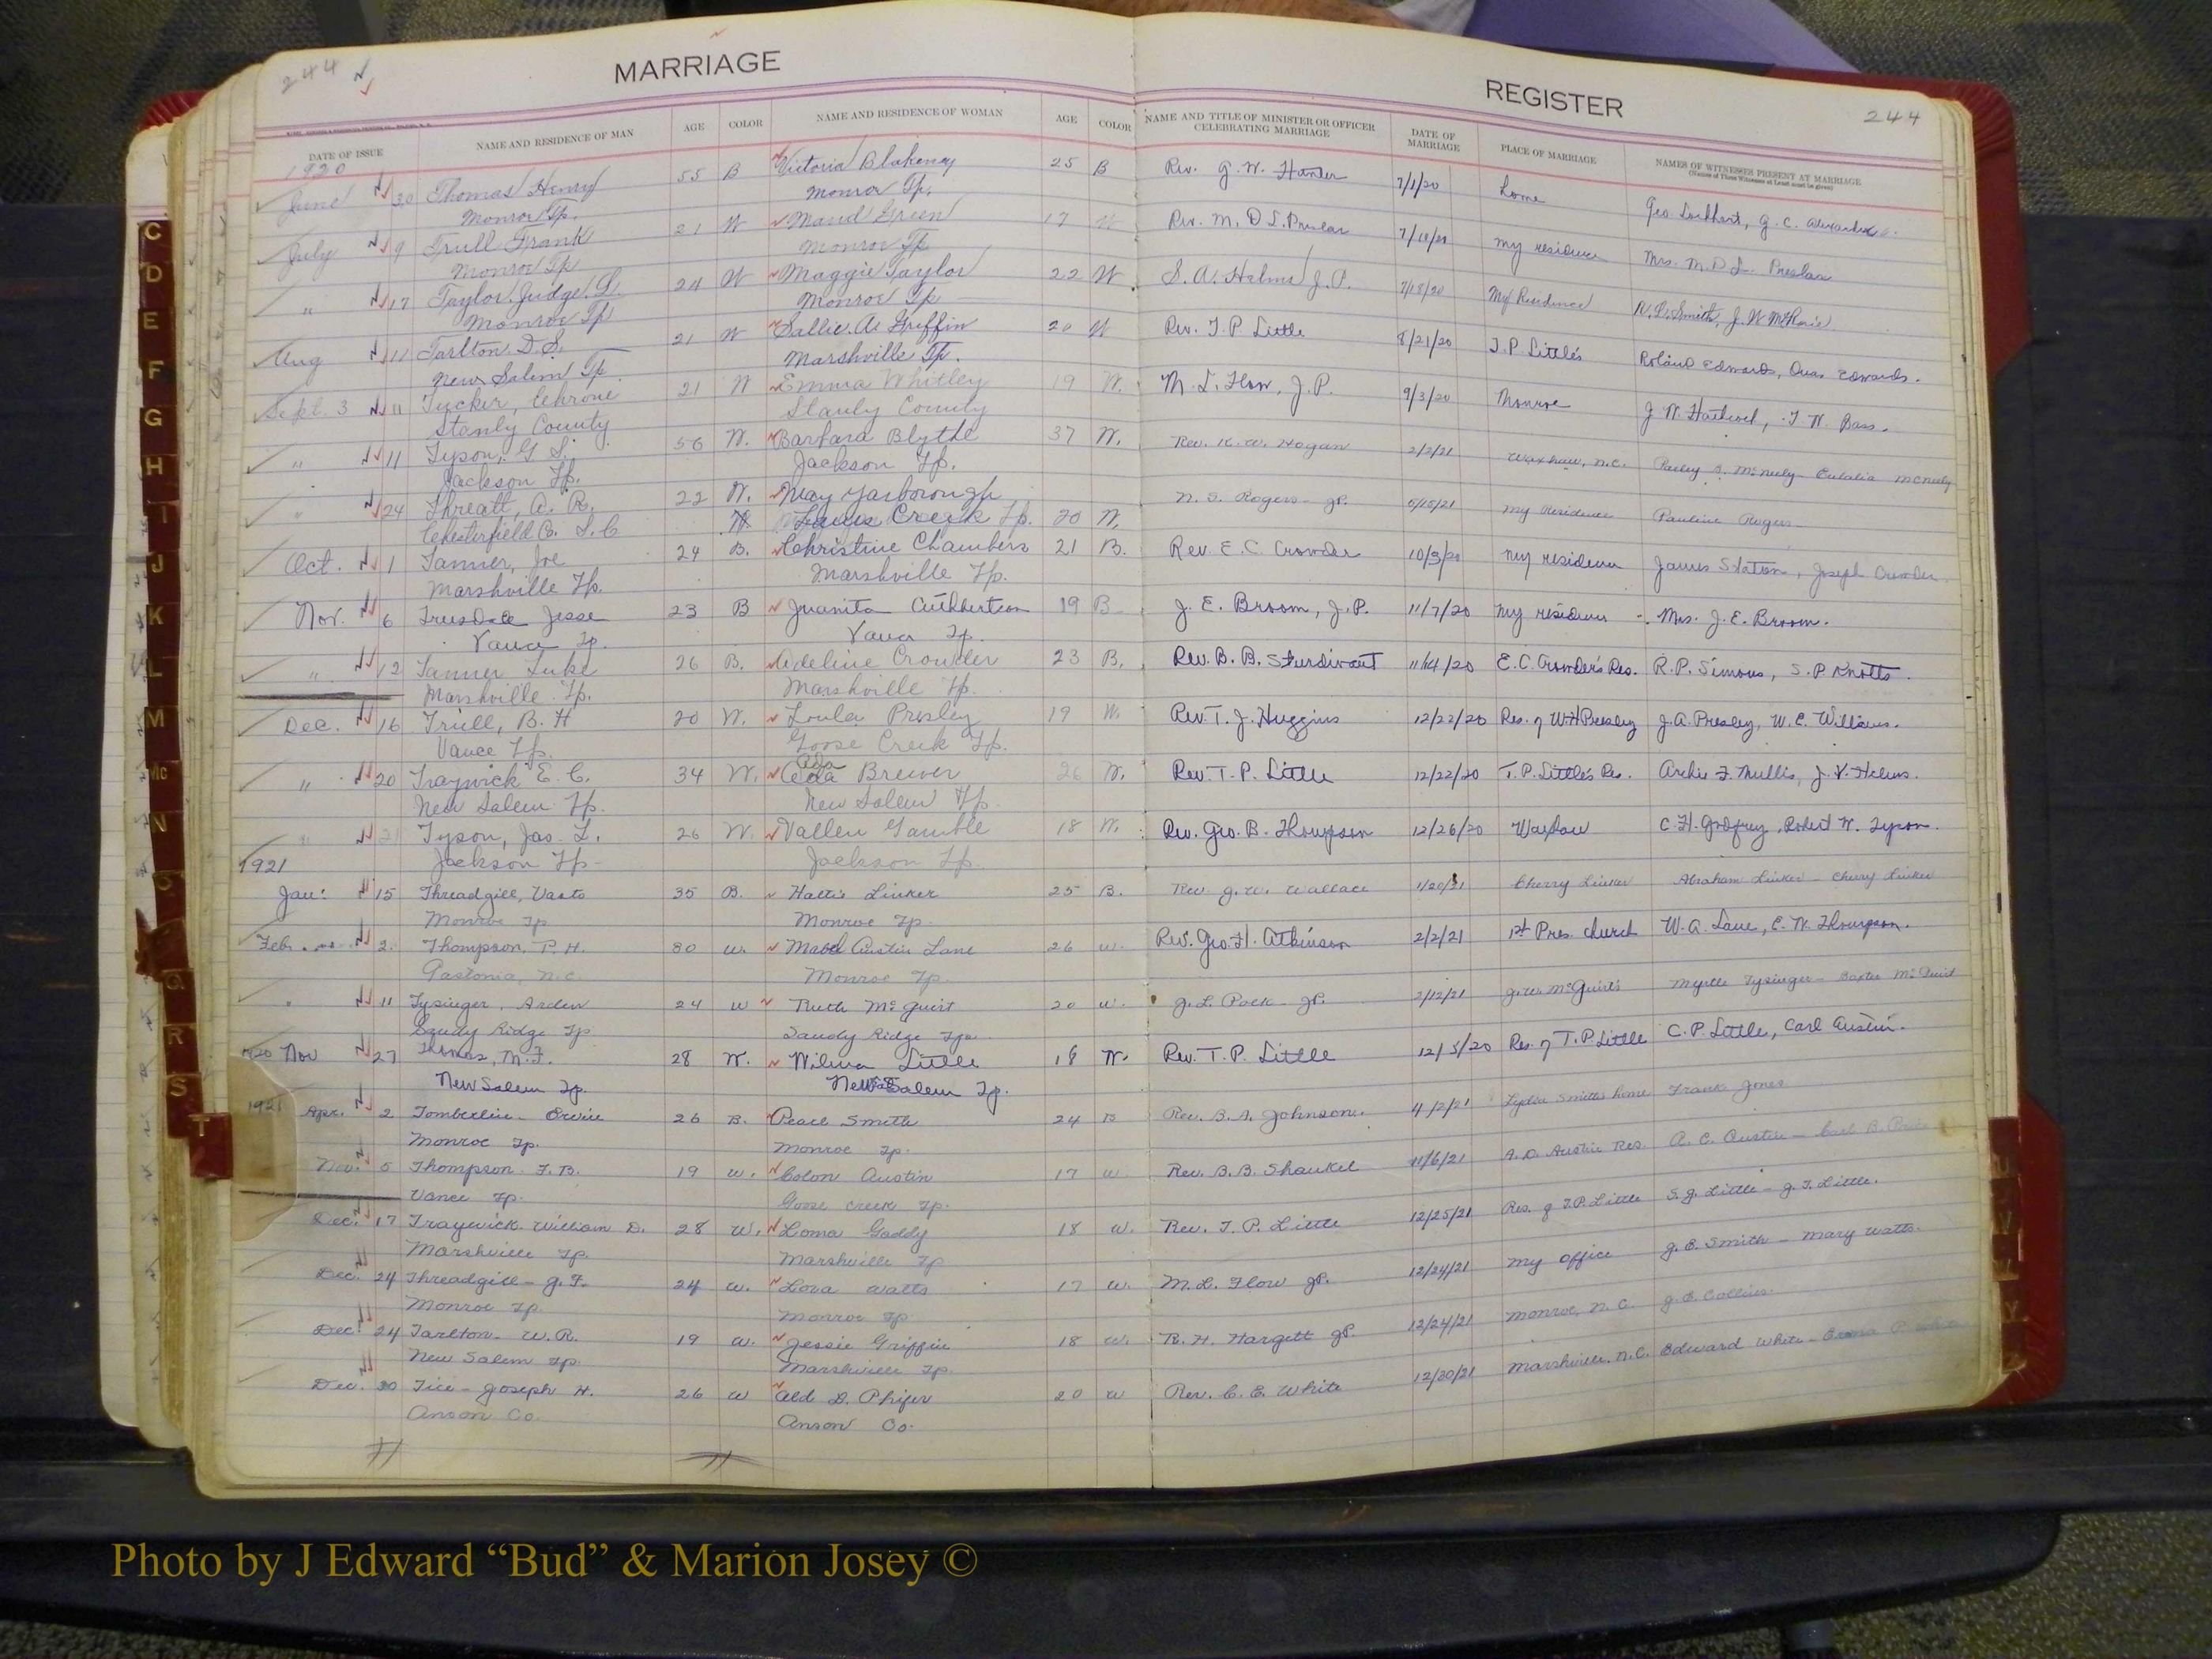 244 MARRIAGE REGISTER 244
DATE OF ISSUE NAME AND RESIDENCE OF MAN AGE COLOR NAME AND RESIDENCE OF WOMAN AGE COLOR NAME AND TITLE OF MINISTER OR OFFICER CELEBRATING MARRIAGE DATE OF MARRIAGE PLACE OF MARRIAGE NAMES OF WITNESSES PRESENT AT MARRIAGE
(Names of Three Witnesses at Least must be given)
1920
June 30 Thomas Henry 55 B Victoria Blakeney 25 B Rev. G. W. Hunter 7/1/20 home Geo Lockhart, G. C.
Monroe Tp. Monroe Tp.
July 9 Trull Frank 21 W Maud Green 17 W Rev. M. D L. Preslar 7/10/20 my residence Mrs. M. D L. Preslar
Monroe Tp Monroe Tp
" 17 Taylor Judge L. 24 W Maggie Taylor 22 W S. A. Helms J. P. 7/18/20 My Residence
Monroe Tp Monroe Tp
Aug 11 Tarlton D. S. 21 W Sallie A. Griffin 20 W Rev. T. P. Little 8/21/20 T. P. Little's Roland Edwards, Edwards.
New Salem Tp Marshville Tp.
Sept. 3 Tucker, 21 W Emma Whitley 19 W. M. L. Flow, J. P. 9/3/20 Monroe J. W. T. W. Bass.
Stanly County Stanly County
" 11 Tyson, G S. 56 W. Barbara Blythe 37 W. Rev. K. W. Hogan 2/2/21 Waxhaw, N.C. McNeely - Eulalia McNeely
Jackson Tp. Jackson Tp.
" 24 Threatt, A. R. 22 W. May Yarborough N. S. Rogers - JP. 5/15/21 my Residence Pauline Rogers
Chesterfield Co. S. C Creek Tp. 20 W.
Oct. 1 Tanner, Joe 24 B. Christine Chambers 21 B. Rev. E. C. Crowder 10/3/20 my residence James Staton, Joseph Crowder
Marshville Tp. Marshville Tp.
Nov. 6 Truesdale Jesse 23 B Juanita Cuthbertson 19 B J. E. Broom, J. P. 11/7/20 my residence Mrs. J. E. Broom.
Vance Tp. Vance Tp.
" 12 Tanner Luke 26 B. Adeline Crowder 23 B. Rev. B. B. Sturdivant 11/14/20 E. C. Crowder's Res. R. P. Simons, S. P. Knotts.
Marshville Tp. Marshville Tp.
Dec. 16 Trull, B. H 20 W. Loula Presley 19 W. Rev. T. J. Huggins 12/22/20 Res. of W. H Presley J. A. Presley, W. E. Williams.
Vance Tp. Goose Creek Tp.
Ada
" 20 Traywick E. C. 34 W. Brewer 26 W. Rev. T. P. Little 12/22/20 T. P. Little's Res. Archie F. Mullis, J. V. Helms.
New Salem Tp. New Salem Tp.
" 21 Tyson, Jas. L. 26 W. Vallen Gamble 18 W. Rev. Geo. B. Thompson 12/26/20 Waxhaw C. H. Godfrey, Robert W. Tyson.
Jackson Tp Jackson Tp.
1921
Jan. 15 Threadgill, Vasto 35 B. Hattie Linker 25 B. Rev J. W. Wallace 1/20/21 Cherry Linker Abraham Linker - Cherry Linker
Monroe Tp Monroe Tp.
Feb. 2. Thompson, P. H. 30 W. Mabel Austin Lane 26 W. Rev. Geo. H. Atkinson 2/2/21 1st Pres. church W. A. Lane, E. W. Thompson.
Gastonia, N.C. Monroe Tp.
" 11 Tysinger, Arden 24 W Ruth McGuirt 20 W. J. L. Polk - JP. 2/12/21 McGuirt's Myrtle Tysinger - Baxter McGuirt
Sandy Ridge Tp Sandy Ridge Tp.
1920 Nov 27 Thomas, M. F. 28 W. Wilma Little 18 W. Rev. T. P. Little 12/5/20 Res. of T. P Little C. P. Little, Carl Austin.
New Salem Tp. New Salem Tp.
1921 Apr. 2 Tomberlin - 26 B. Pearl Smith 24 B Rev. B. A. Johnson. 4/2/21 Lydia Smith's home Frank Jones
Monroe Tp. Monroe Tp.
Nov. 5 Thompson F. B. 19 W. Colon Austin 17 W Rev. B. B. Shankel 11/6/21 A. D. Austin Res. A. C. Austin -
Vance Tp. Goose Creek Tp.
Dec. 17 Traywick William D. 28 W. Loma Gaddy 18 W. Rev. T. P. Little 12/25/21 Res. of T. P. Little S. J. Little - J. T. Little.
Marshville Tp. Marshville Tp
Dec. 24 Threadgill - J. F. 24 W. Lora Watts 17 W. M. L. Flow JP. 12/24/21 my office J. E. Smith - Mary Watts.
Monroe Tp. Monroe Tp
Dec. 24 Tarlton - W. R. 19 W. Jessie Griffin 18 W. R. H. Hargett JP. 12/24/21 Monroe, N. C. J. E. Collins.
New Salem Tp Marshville Tp.
Dec. 30 Tice - Joseph H. 26 W D. Phifer 20 W Rev. C. E. White 12/30/21 Marshville, N.C. Edward White -
Anson Co. Anson Co.
C
D
E
F
G
H
I
J
K
L
M
Mc
N
O
Q
R
S
T
Photo by J Edward “Bud” & Marion Josey ©